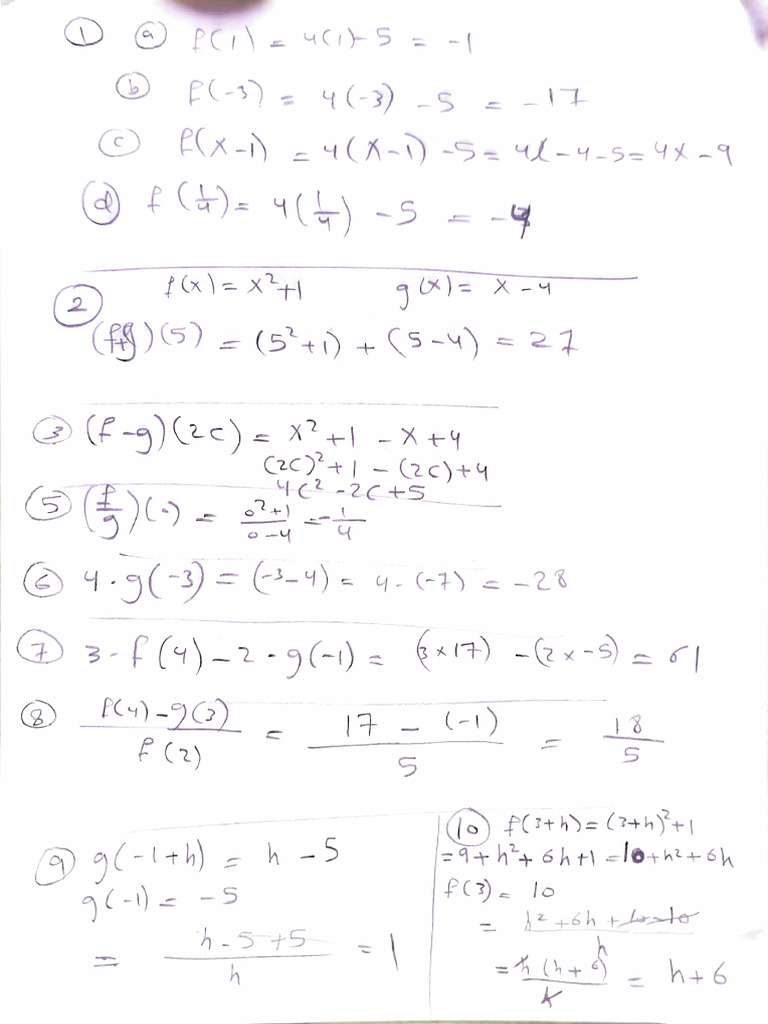 ① ⓐ f(1) = 4(1) - 5 = -1
ⓑ f(-3) = 4(-3) - 5 = -17
ⓒ f(x-1) = 4(x-1) - 5 = 4x - 4 - 5 = 4x - 9
ⓓ f(1/4) = 4(1/4) - 5 = -4
② f(x) = x²+1 g(x) = x-4
(f+g)(5) = (5²+1) + (5-4) = 27
③ (f-g)(2c) = x²+1 - x+4
(2c)²+1 - (2c)+4
4c² - 2c + 5
⑤ (f/g)(0) = (0²+1)/(0-4) = -1/4
⑥ 4·g(-3) = (-3-4) = 4·(-7) = -28
⑦ 3·f(4) - 2·g(-1) = (3×17) - (2×-5) = 61
⑧ (f(4)-g(3))/f(2) = (17 - (-1))/5 = 18/5
⑨ g(-1+h) = h - 5
g(-1) = -5
= (h-5+5)/h = 1
⑩ f(3+h) = (3+h)²+1
= 9+h²+6h+1 = 10+h²+6h
f(3) = 10
= (h²+6h+10-10)/h
= h(h+6)/h = h+6